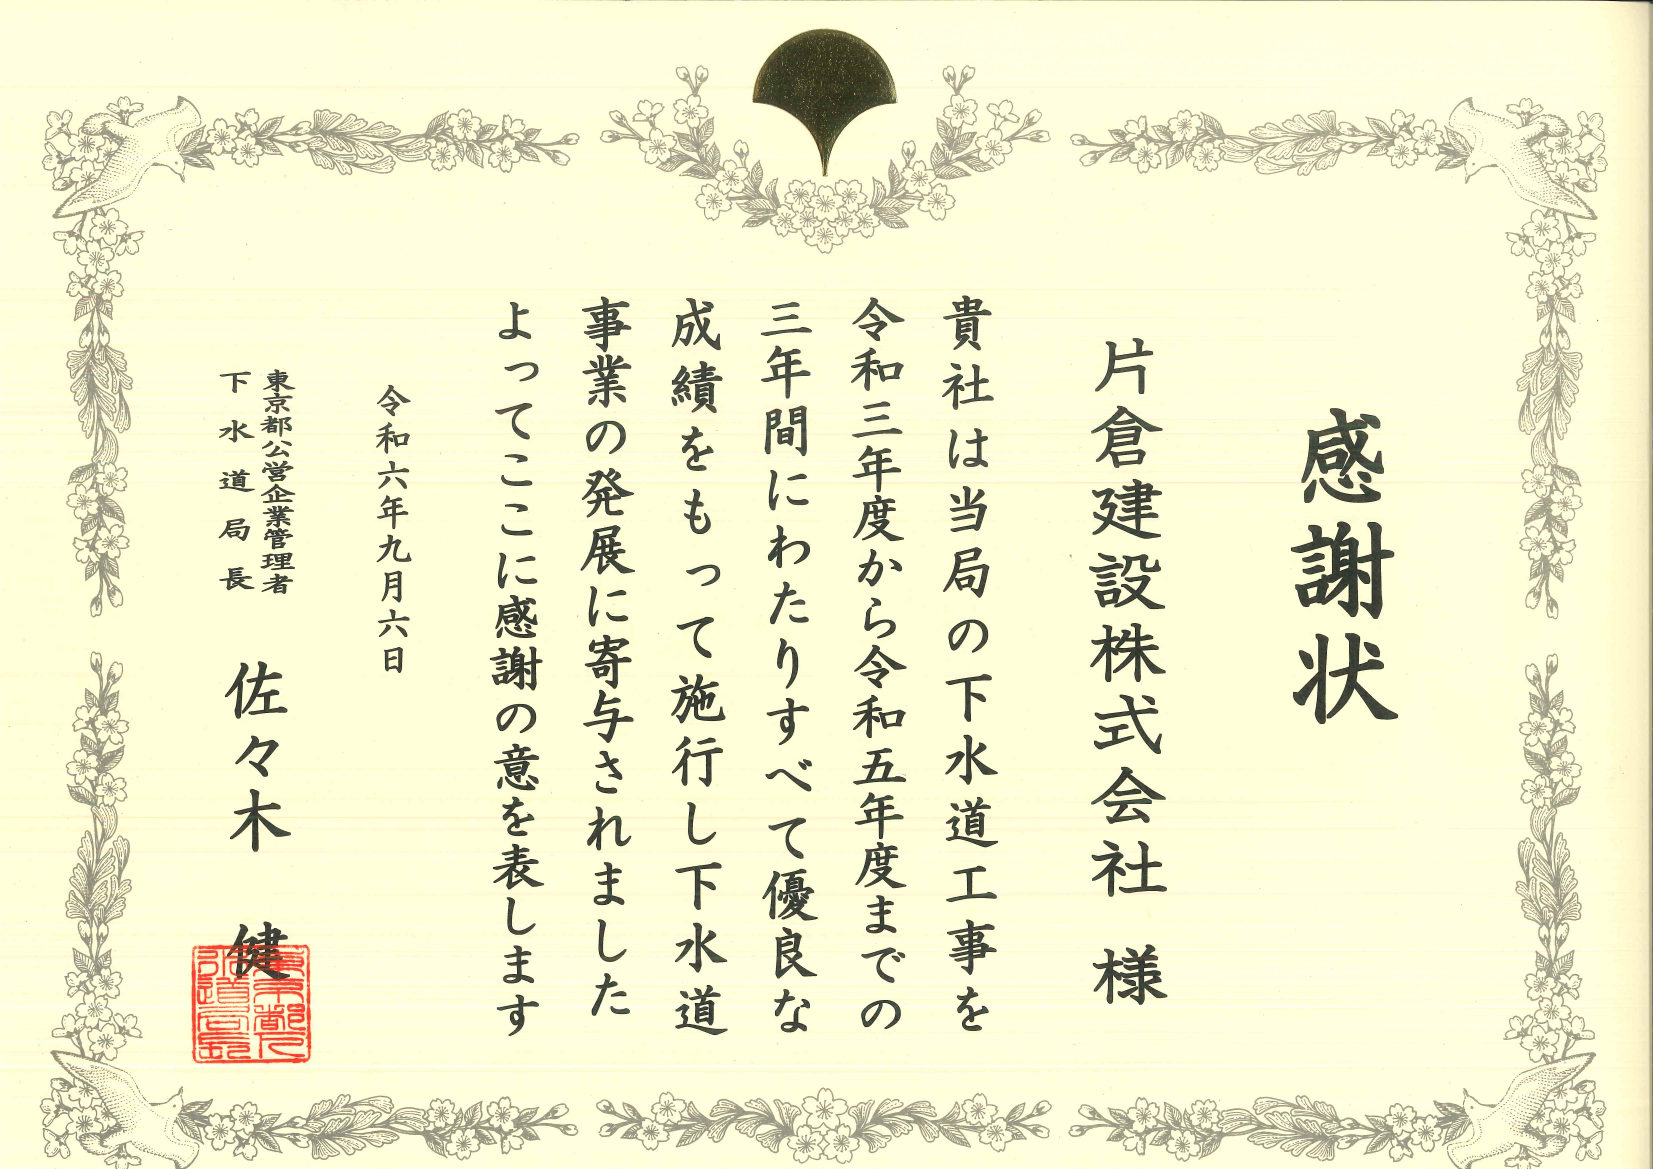 感謝状
片倉建設株式会社 様
貴社は当局の下水道工事を
令和三年度から令和五年度までの
三年間にわたりすべて優良な
成績をもって施行し下水道
事業の発展に寄与されました
よってここに感謝の意を表します
令和六年九月六日
東京都公営企業管理者
下水道局長
佐々木 健
東京都下水道局長